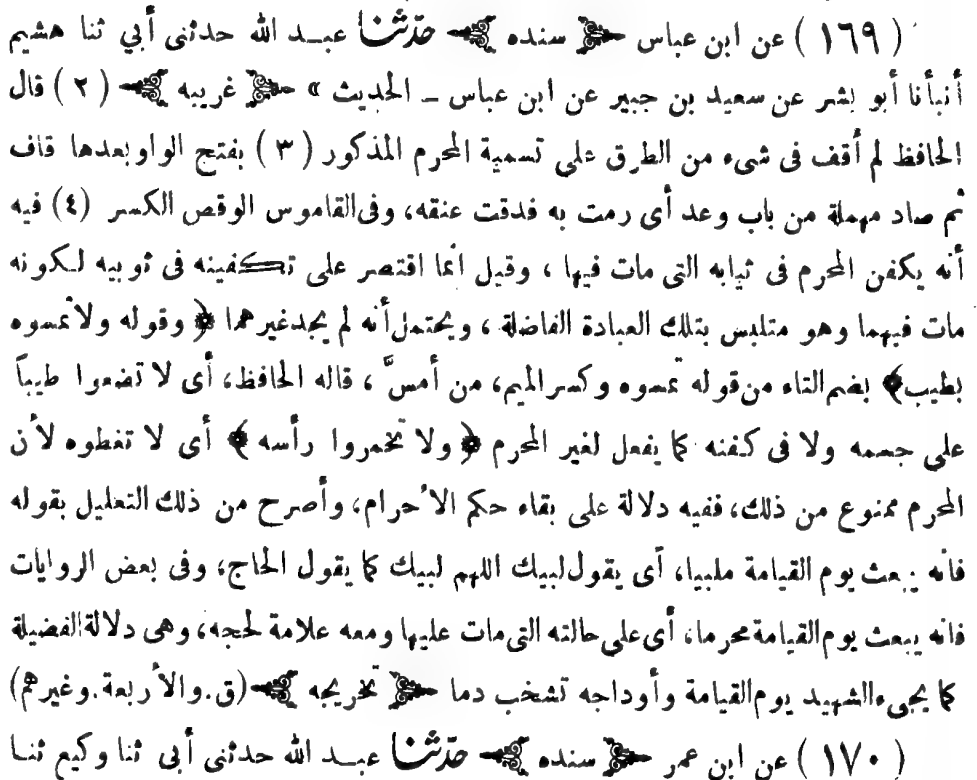 ( ١٦٩ ) عن ابن عباس ﴿ سنده ﴾ حدّثنا عبـد الله حدثنى أبي ثنا هشيم
أنبأنا أبو بشر عن سعيد بن جبير عن ابن عباس ـ الحديث » ﴿ غريبه ﴾ ( ٢ ) قال
الحافظ لم أقف فى شىء من الطرق على تسمية المحرم المذكور ( ٣ ) بفتح الواو بعدها قاف
ثم صاد مهملة من باب وعد أى رمت به فدقت عنقه، وفى القاموس الوقص الكسر (٤) فيه
أنه يكفن المحرم فى ثيابه التى مات فيها ، وقيل انما اقتصر على تكفينه فى ثوبيه لكونه
مات فيهما وهو متلبس بتلك العبادة الفاضلة ، ويحتمل أنه لم يجد غيرهما ﴿ وقوله ولا تمسوه
بطيب﴾ بضم التاء من قوله تمسوه وكسر الميم، من أمسَّ ، قاله الحافظ، أى لا تضعوا طيباً
على جسمه ولا فى كفنه كما يفعل لغير المحرم ﴿ ولا تخمروا رأسه ﴾ أى لا تغطوه لأن
المحرم ممنوع من ذلك، ففيه دلالة على بقاء حكم الاحرام، وأصرح من ذلك التعليل بقوله
فانه يبعث يوم القيامة ملبيا، أى يقول لبيك اللهم لبيك كما يقول الحاج، وفى بعض الروايات
فانه يبعث يوم القيامة محرما، أى على حالته التى مات عليها ومعه علامة لحجه، وهى دلالة الفضيلة
كما يجىء الشهيد يوم القيامة وأوداجه تشخب دما ﴿ تخريجه ﴾ (ق. والأربعة. وغيرهم)
( ١٧٠ ) عن ابن عمر ﴿ سنده ﴾ حدّثنا عبـد الله حدثنى أبى ثنا وكيع ثنـا